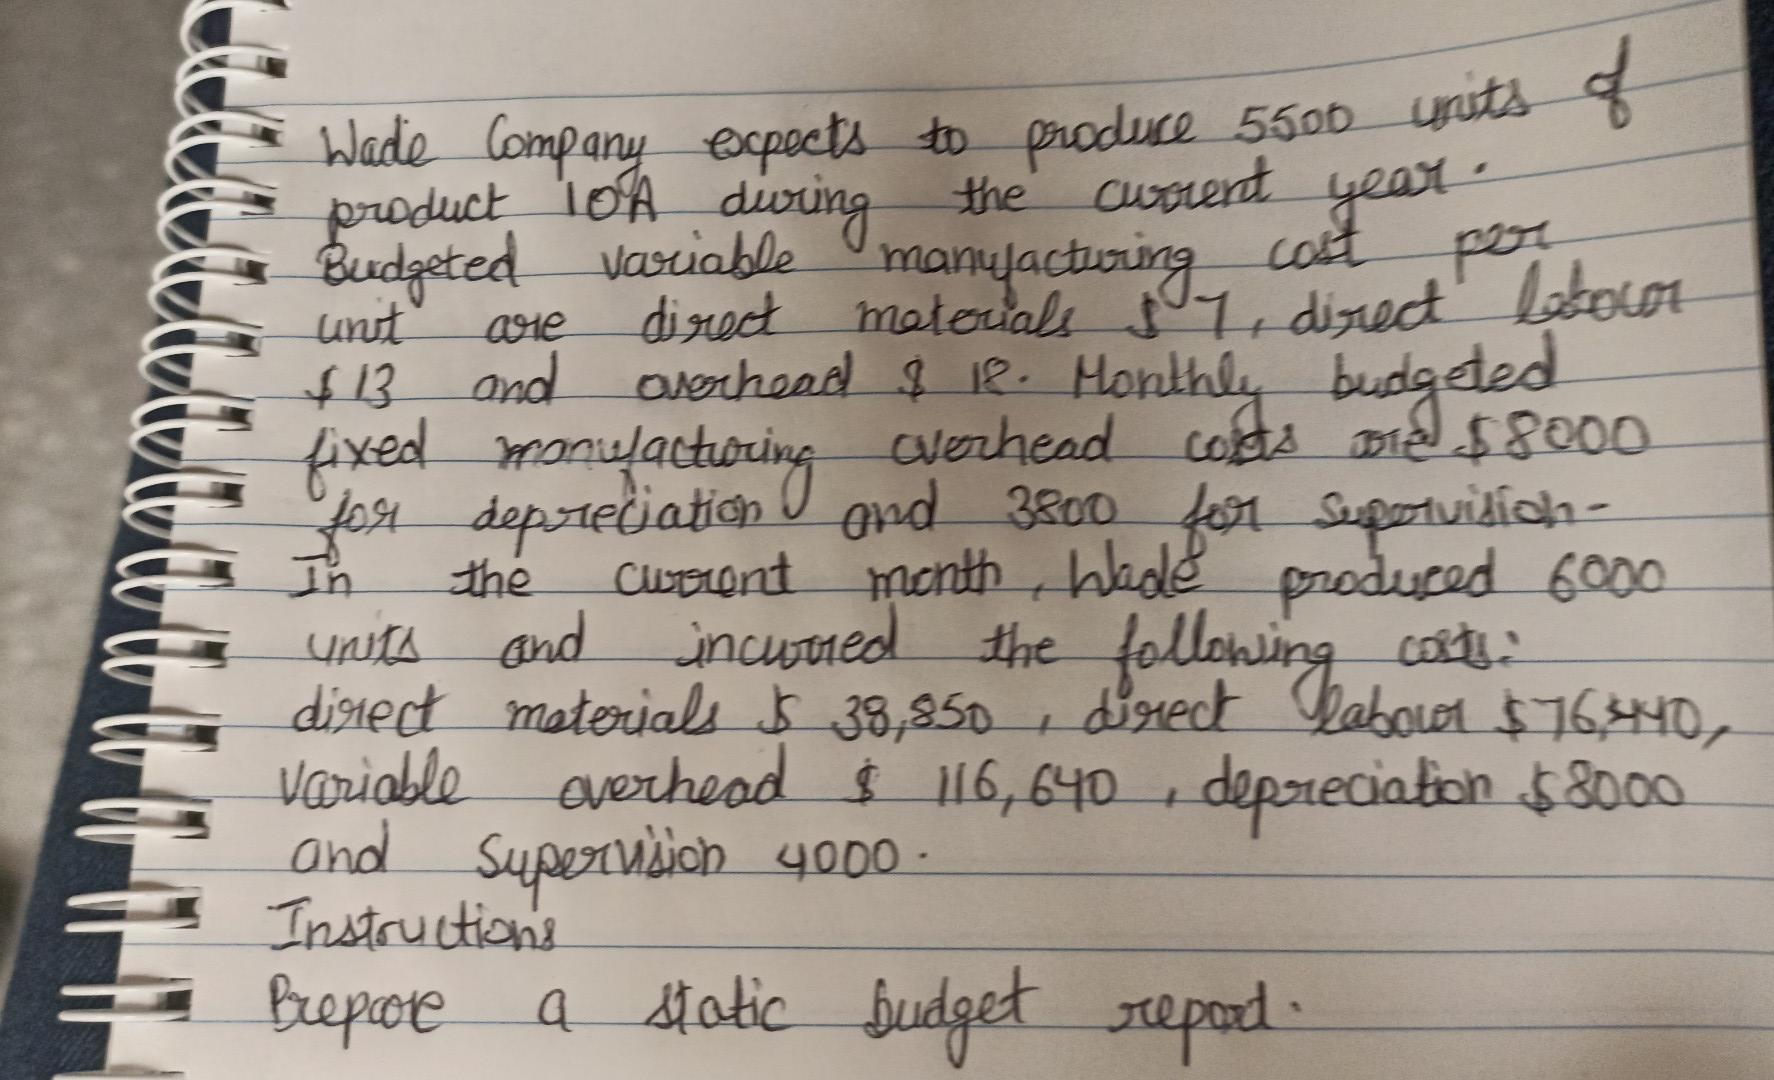 Wade Company expects to produce 5500 units of
product 10A during the current year.
Budgeted variable manufacturing cost per
unit are direct materials $ 7, direct labour
$ 13 and overhead $ 18. Monthly budgeted
fixed manufacturing overhead costs are $ 8000
for depreciation and 3800 for Supervision-
In the current month, Wade produced 6000
units and incurred the following costs:
direct materials $ 38,850, direct labour $ 76,440,
Variable overhead $ 116,640, depreciation $ 8000
and Supervision 4000.
Instructions
Prepare a static budget report.